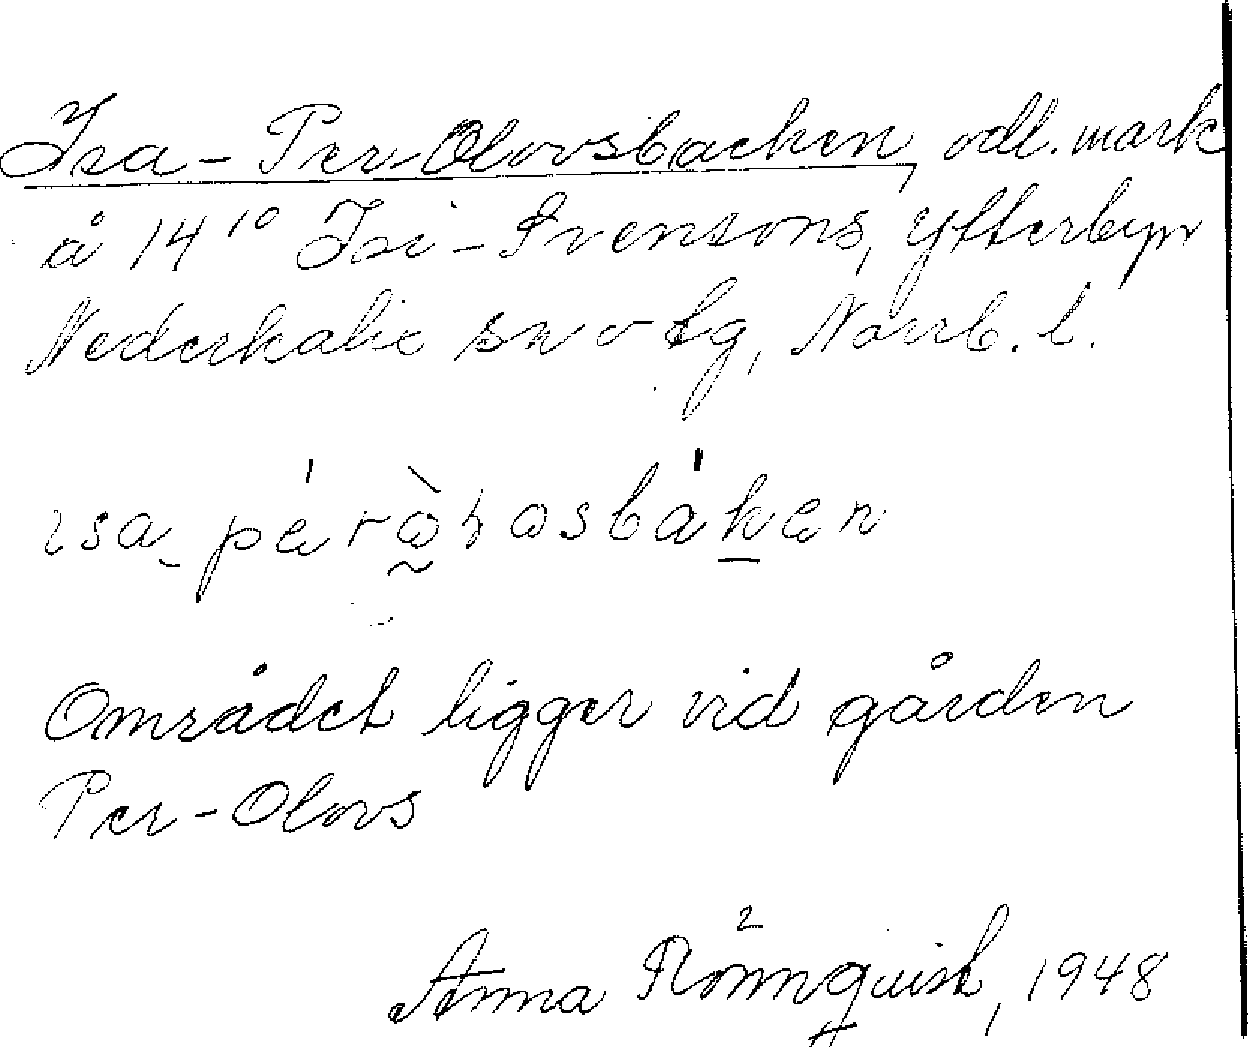 Isa-Per-Olovsbacken, odl. mark
å 14¹⁰ Isi-Svensons, Ytterbyn
Nederkalix sn o tg, Norrb. l.
Området ligger vid gården
Per-Olovs
Anna Rönnquist, 1948